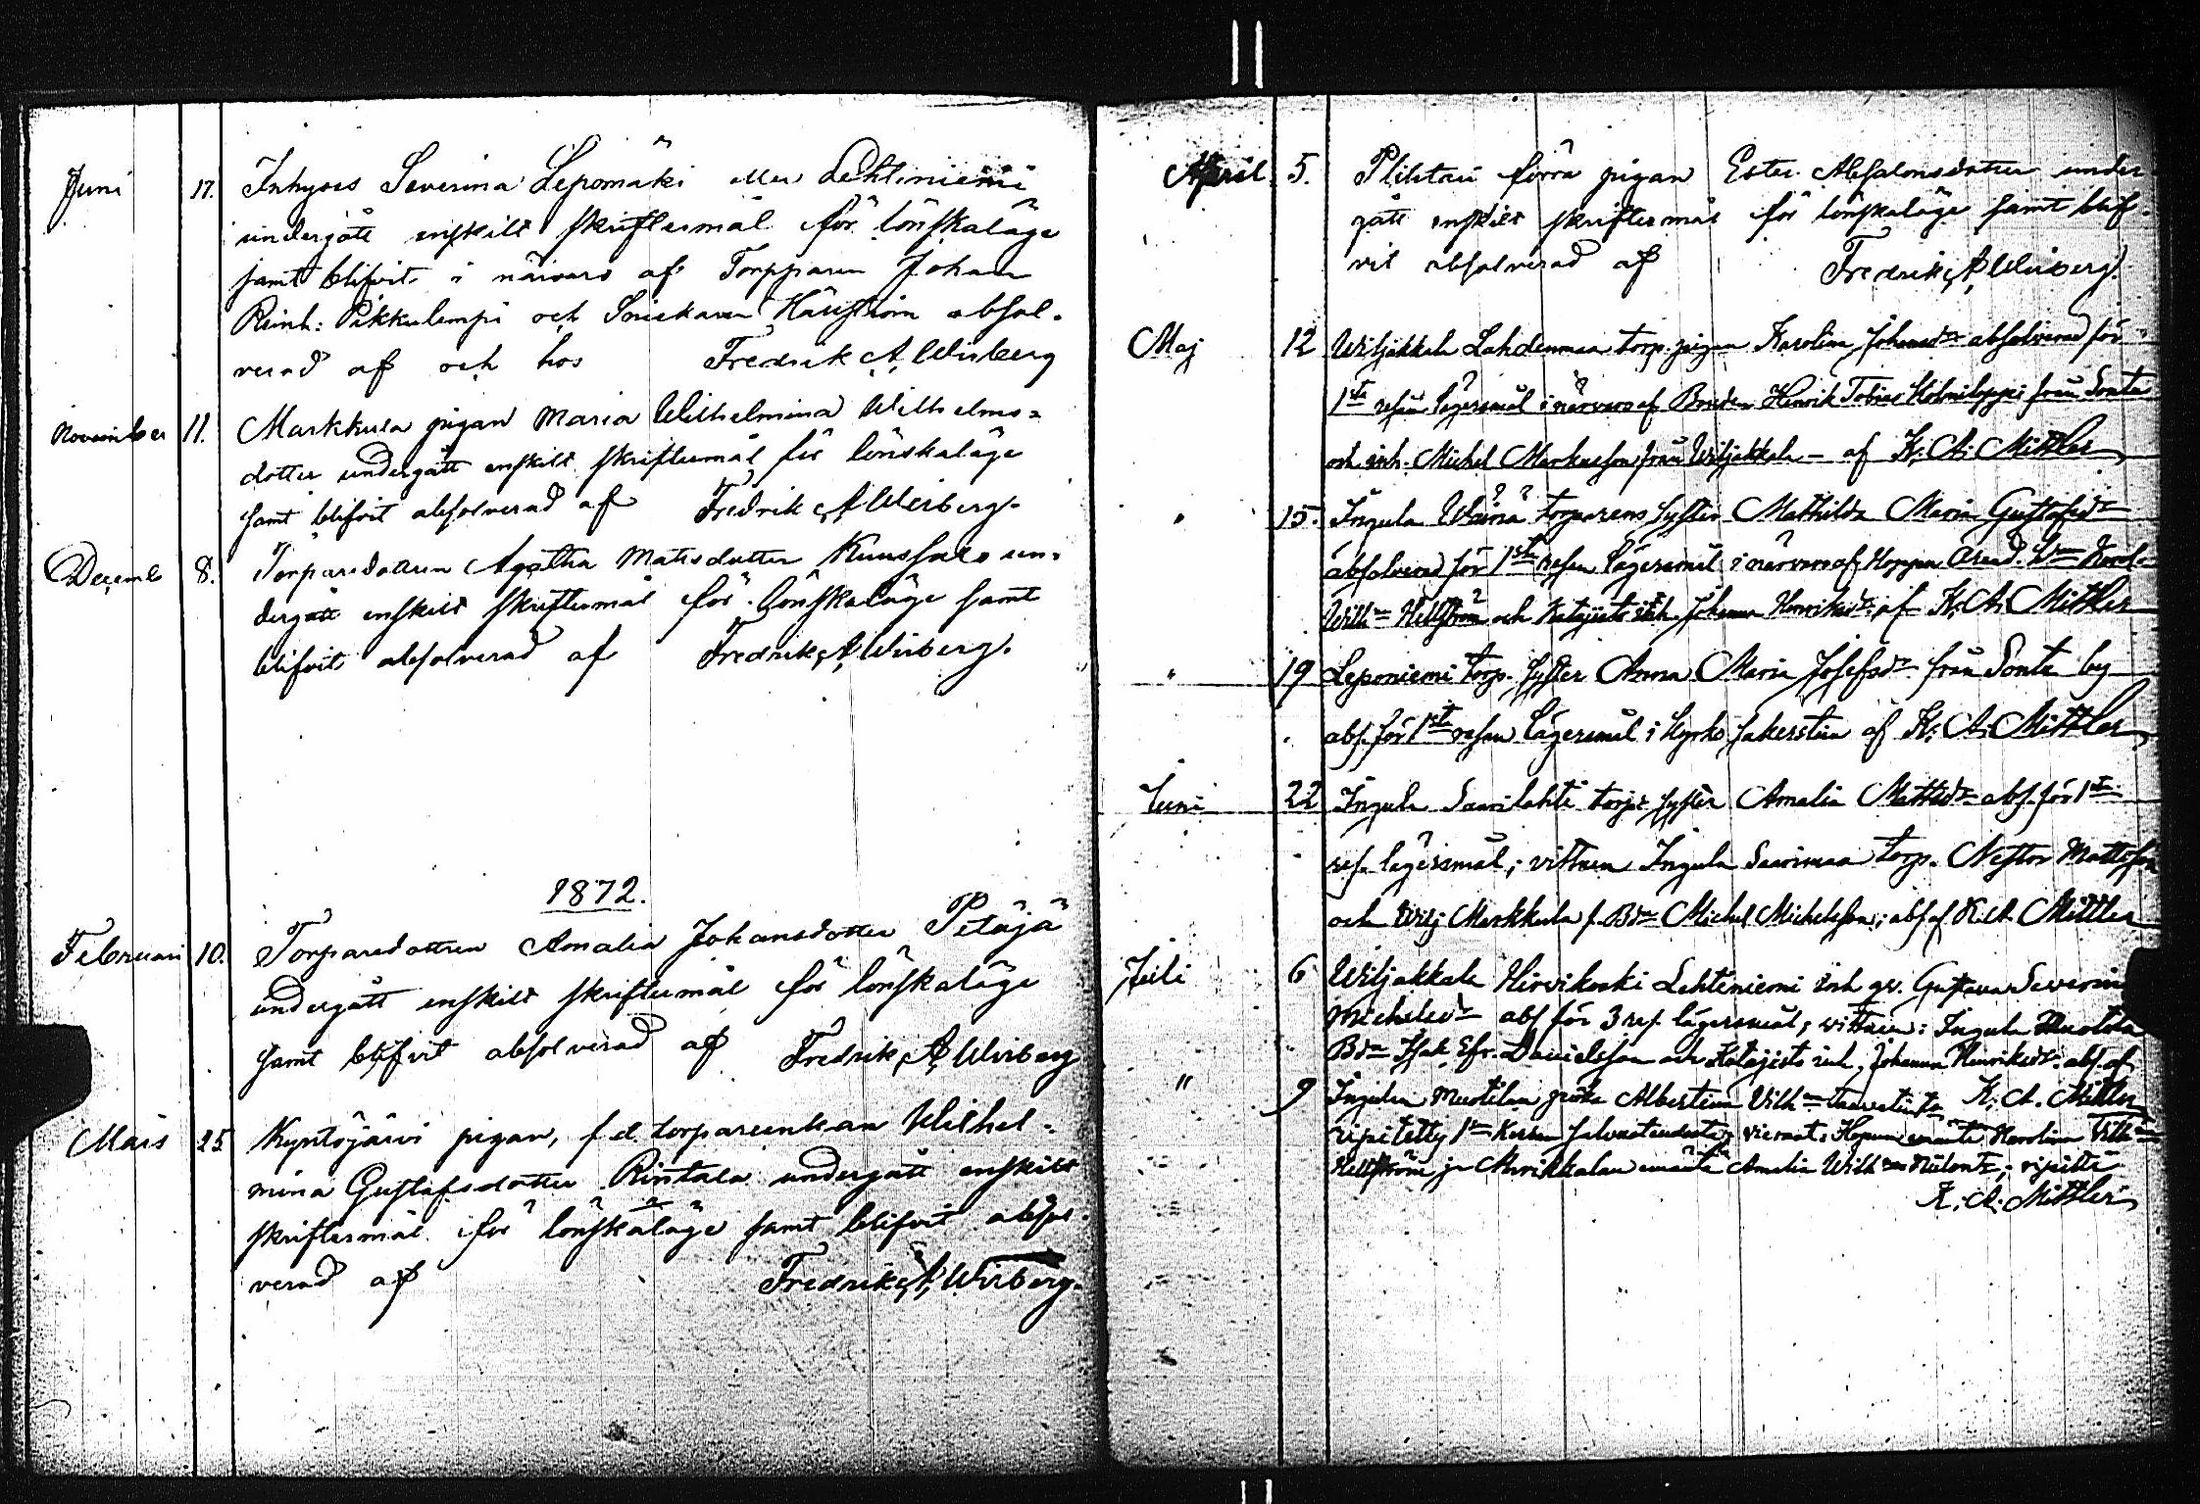 Juni 17. Inhyses Severina Lepomäki eller Lehtiniemi
undergått enskilt skriftermål för lönskaläge
samt blifvit i närvaro af Torpparen Johan
Reinh: Pikkulempi och absol-
verad af och hos Fredrik A, Wirberg
November 11. Markkula pigan Maria Wilhelmina Wilhelms-
dotter undergått enskilt skriftermål för lönskaläge
samt blifvit absolverad af Fredrik A Wirberg.
Decemb 8. Torparedottren Agatha Matsdotter Kuussalo un-
dergått enskilt skriftermål för lönskaläge samt
blifvit absolverad af Fredrik A, Wirberg.
1872.
Februari 10. Torparedottren Amalia Johansdotter Petäjä
undergått enskilt skriftermål för lönskaläge
samt blifvit absolverad af Fredrik A, Wirberg
Mars 25 Kyntöjärvi pigan, f.d. torpareenkan Wilhel-
mina Gustafsdotter Rintala undergått enskilt
skriftermål för lönskaläge samt blifvit absol-
verad af Fredrik A, Wirberg.
April 5. förra pigan Ester Absalonsdotter under-
gått enskilt skriftermål för lönskaläge samt blif-
vit absolverad af Fredrik A, Wirberg.
Maj 12 Wiljakkala Lahdenmaa torp. pigan Karolina Johansdr absolverad för
1sta resan lägersmål i närvaro af Bonden Henrik Tobias från Sonta
och inh. Michel Markusson från Wiljakkala – af K. A. Mittler
" 15. Ingula Wäinä torparens syster Mathilda Maria Gustafsdr
absolverad för 1sta resan lägersmål i närvaro af Hoppu
Willm Hellström och Katajisto inh. Johanna Henriksdr; af K. A. Mittler
" 19 Leponiemi torp. syster Anna Maria Josefsdr från Sonta by
abs. för 1sta resan lägersmål i kyrko sakerstian af K. A. Mittler
Juni 22 Ingula Saarilahti torps syster Amalia Mattsdr abs. för 1sta
res. lägersmål; vittnen Ingula Saarimaa torp. Nestor Mattsson
och Wilj Markkula f. Bdn Michel Michelsson; abs. af K. A. Mittler
Juli 6 Wiljakkala Hirvikoski Lehteniemi inh qv. Gustava Severina
Michelsdr abs för 3 res. lägersmål; vittnen: Ingula Muotila
Bdn Isak Efr. Danielsson och Katajisto inh. Johanna Henriksdr. abs. af
K. A. Mittler
" 9 Ingulan Muotilan piika Albertina Vilh
ripitetty 1sn kerran salavuoteudesta; vieraat: Hopun emäntä Karolina Vilh
Hellström ja Ahrikkalan emäntä Amalia Wilh ; ripitti
K. A. Mittler